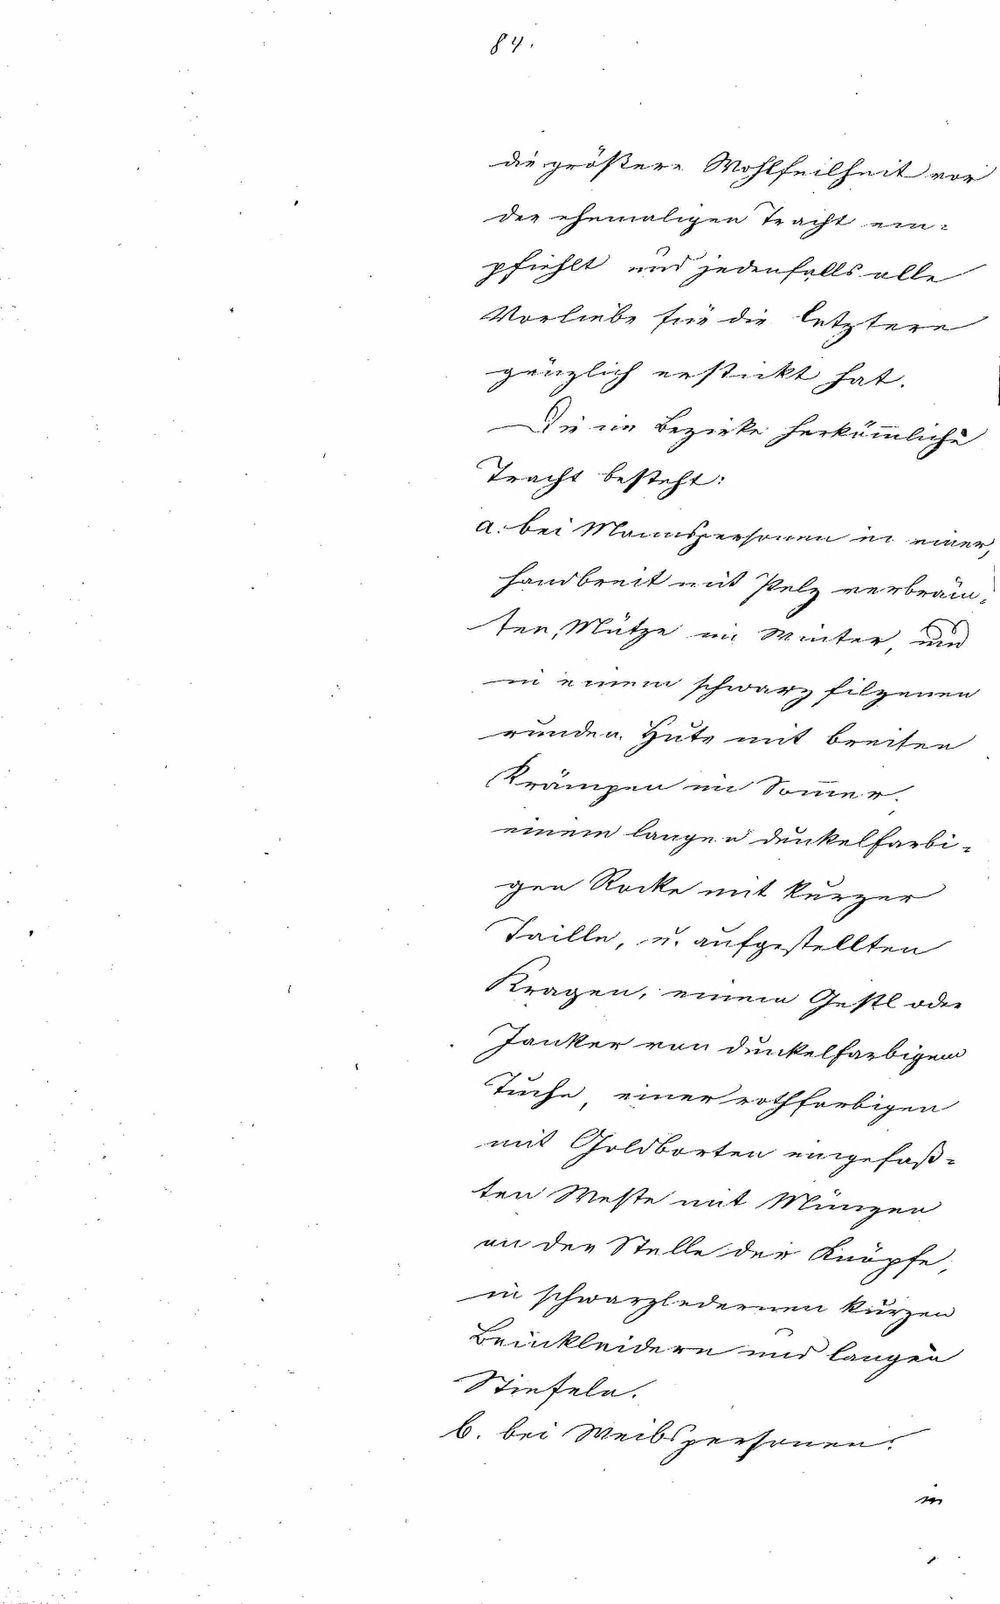 84.
die größere Wohlfeilheit vor
der ehemaligen Tracht em=
pfiehlt und jedenfalls alle
Vorliebe für die letztere
gänzlich erstickt hat.
Die im Bezirke herkömmliche
Tracht besteht:
a. bei Mannspersonen in einer,
handbreit mit Pelz verbräm=
ten, Mütze im Winter, und
in einem schwarz filzenen
runden Hute mit breiten
Krämpen im Sommer,
einem langen dunkelfarbi=
gen Rocke mit kurzer
Taille, u. aufgestellten
Kragen, einem Gestl oder
Janker von dunkelfarbigem
Tuche, einer rothfarbigen
mit Goldborten eingefaß=
ten Weste mit Münzen
an der Stelle der Knöpfe,
in schwarzledernen kurzen
Beinkleidern und langen
Stiefeln.
b. bei Weibspersonen:
in